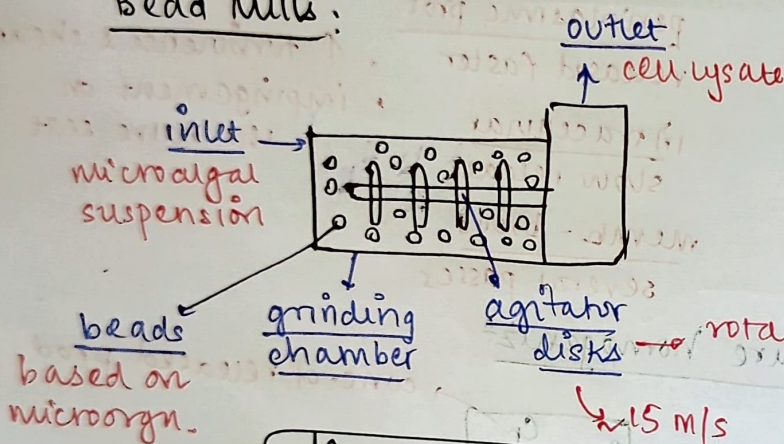 Bead Mills:
outlet
cell lysate
inlet
microalgal
suspension
beads
based on
microorgn.
grinding
chamber
agitator
disks
rota
~15 m/s